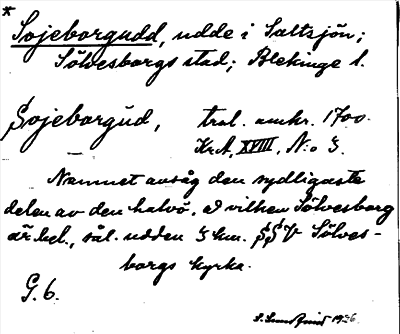 * Sojeborgudd, udde i Saltsjön;
Sölvesborgs stad; Blekinge l.
Sojeborgud, trol. omkr. 1700.
Kr.A. XVIII, N:o 3.
Namnet avsåg den sydligaste
delen av den halvö, å vilken Sölvesborg
är bel., sål. udden 3 km. SSV Sölves-
borgs kyrka.
G. 6.
1926.